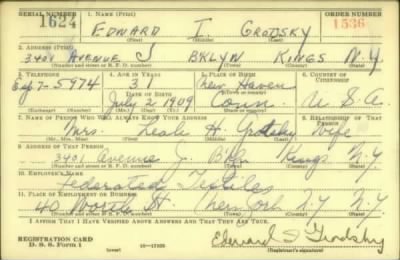 SERIAL NUMBER 1. NAME (Print) ORDER NUMBER
1624 EDWARD I. GRODSKY 1536
(First) (Middle) (Last)
2. ADDRESS (Print)
3401 AVENUE J BKLYN KINGS N.Y.
(Number and street or R. F. D. number) (Town) (County) (State)
3. TELEPHONE 4. AGE IN YEARS 5. PLACE OF BIRTH 6. COUNTRY OF CITIZENSHIP
31 New Haven
7-5974 DATE OF BIRTH (Town or county)
July 2 1909 Conn. U.S.A.
(Exchange) (No.) (Mo.) (Day) (Yr.) (State or country)
7. NAME OF PERSON WHO WILL ALWAYS KNOW YOUR ADDRESS 8. RELATIONSHIP OF THAT PERSON
Mrs. H. Grodsky Wife
(Mr., Mrs., Miss) (First) (Middle) (Last)
9. ADDRESS OF THAT PERSON
3401 Avenue J. Bklyn Kings N.Y.
(Number and street or R. F. D. number) (Town) (County) (State)
10. EMPLOYER'S NAME
Federated Textiles
11. PLACE OF EMPLOYMENT OR BUSINESS
40 Worth St New York N.Y N.Y.
(Number and street or R. F. D. number) (Town) (County) (State)
I AFFIRM THAT I HAVE VERIFIED ABOVE ANSWERS AND THAT THEY ARE TRUE.
REGISTRATION CARD
D. S. S. FORM 1 (over) 16—17105 Edward I Grodsky
(Registrant's signature)